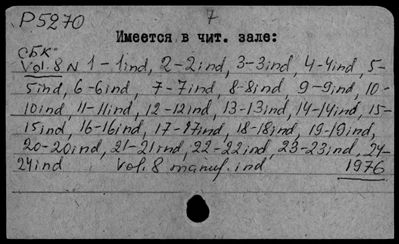 P5270
7
Имеется в чит. зале:
СБК
Vol. 8 N 1-1ind, 2-2ind, 3-3ind, 4-4ind, 5-
5ind, 6-6ind, 7-7ind, 8-8ind 9-9ind, 10-
10ind, 11-11ind, 12-12ind, 13-13ind, 14-14ind, 15-
15ind, 16-16ind, 17-17ind, 18-18ind, 19-19ind,
20-20ind, 21-21ind, 22-22ind, 23-23ind, 24-
24ind Vol. 8 manuf. ind 1976